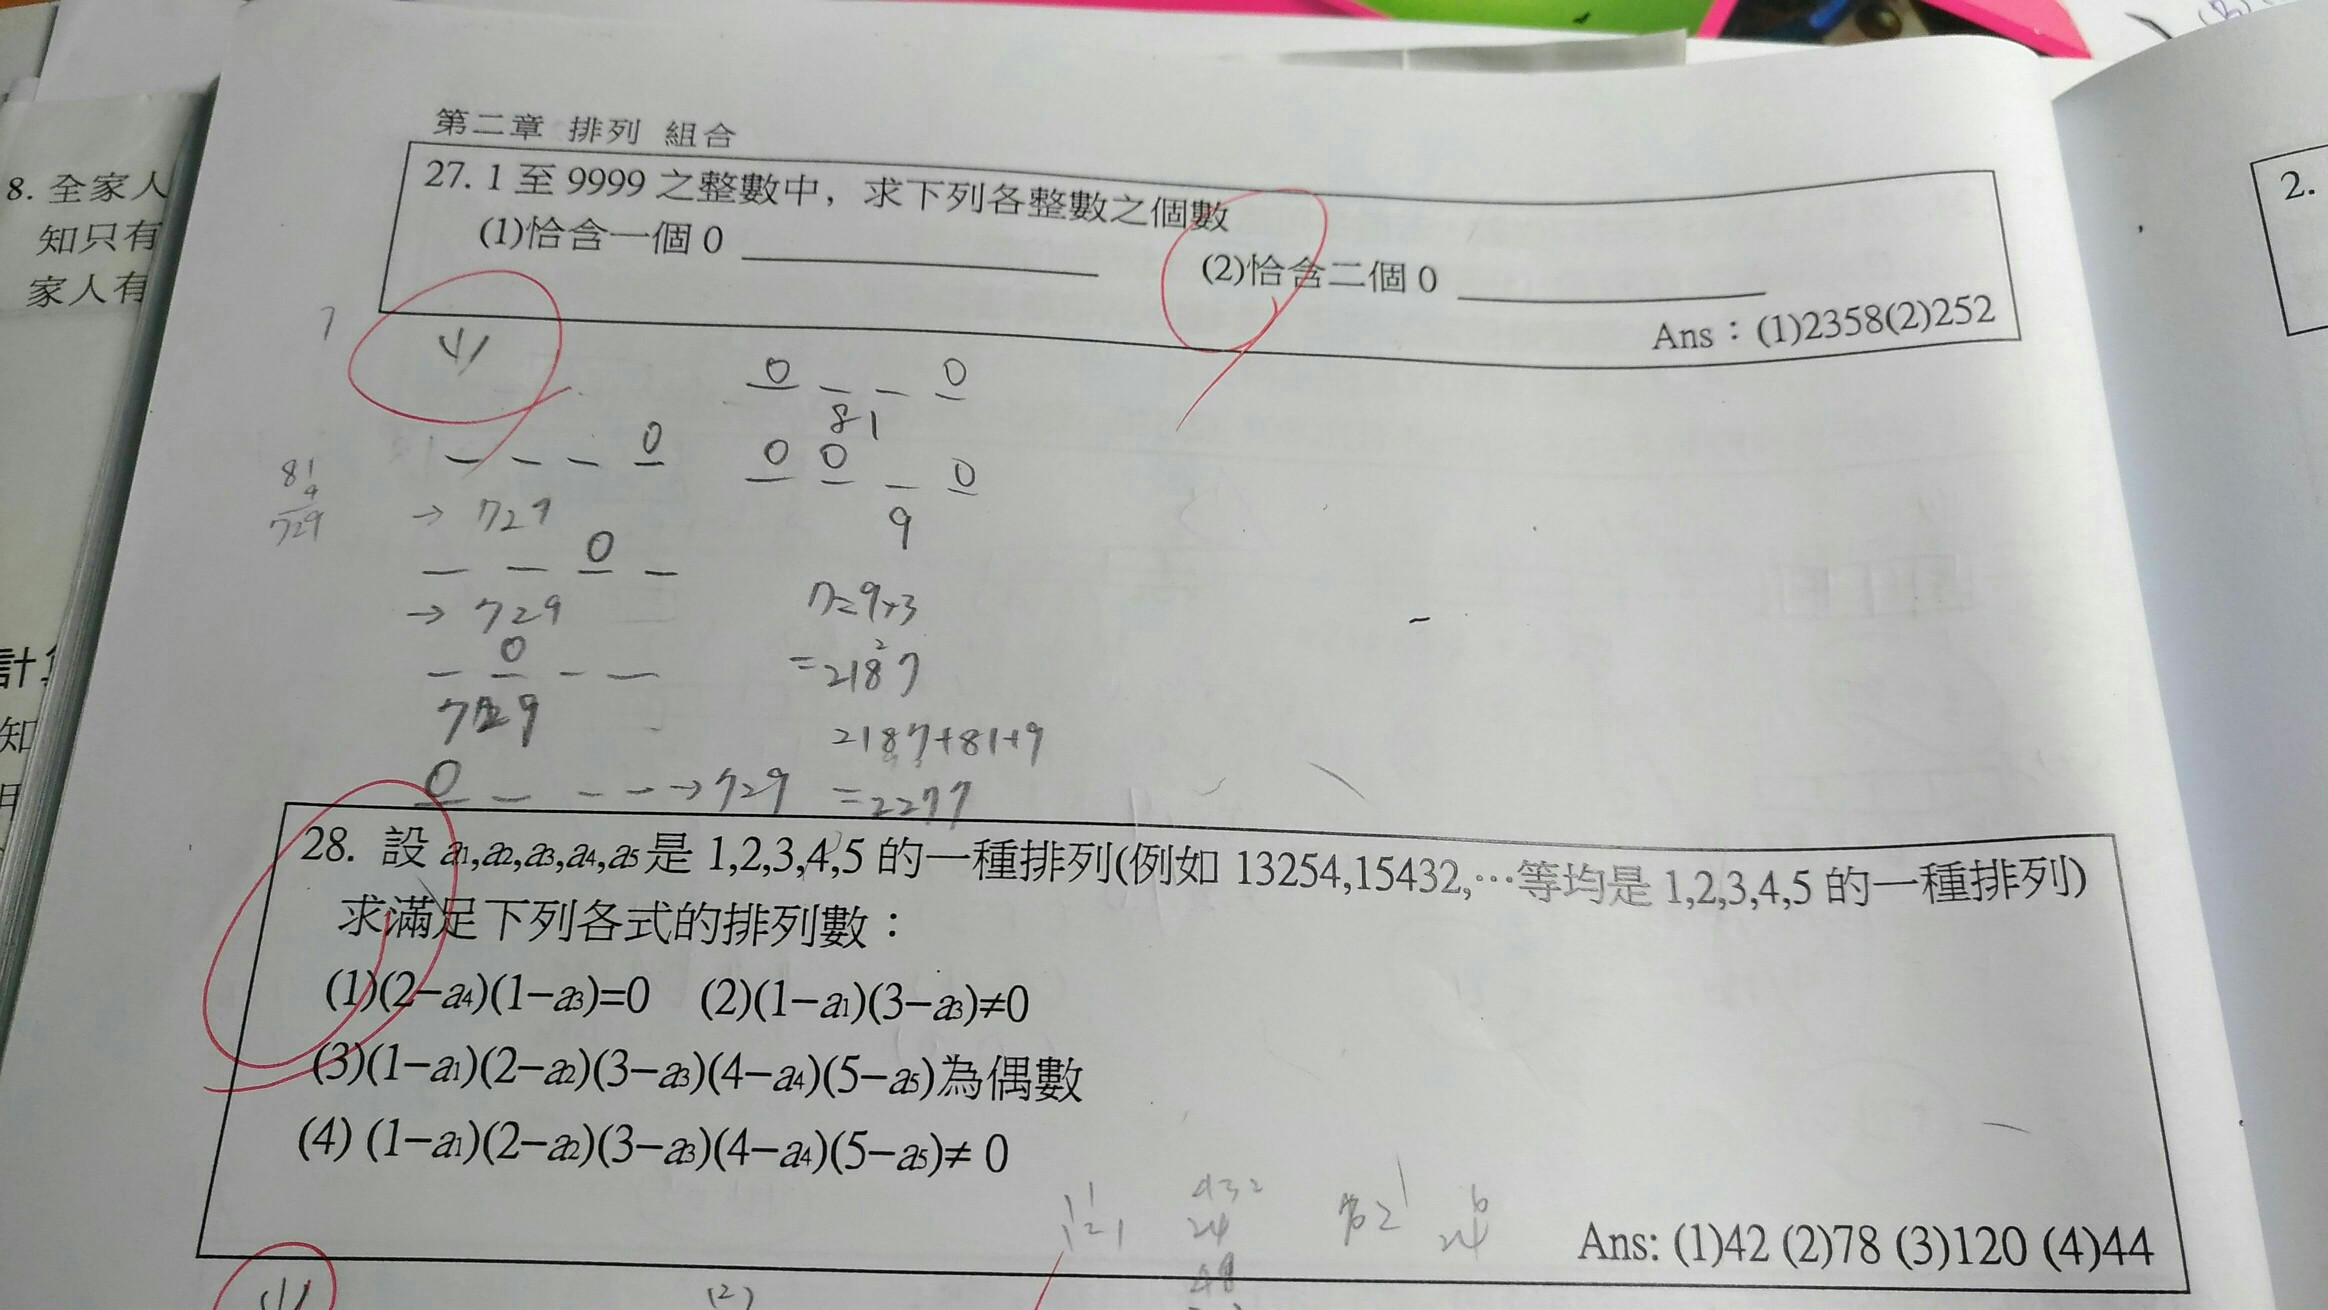 第二章 排列 組合
27. 1 至 9999 之整數中，求下列各整數之個數
(1)恰含一個 0 ________ (2)恰含二個 0 ________
Ans：(1)2358(2)252
8. 全家人
知只有
家人有
知
2.
(1)
0 _ _ 0
81
_ _ _ 0
0 0 _ 0
81
9
729
→ 729
9
_ _ 0 _
→ 729
n=9×3
_ 0 _ _
=2187
729
2187+81+9
0 _ _ _ → 729
=2277
28. 設 a1,a2,a3,a4,a5 是 1,2,3,4,5 的一種排列(例如 13254,15432,…等均是 1,2,3,4,5 的一種排列)
求滿足下列各式的排列數：
(1)(2−a4)(1−a3)=0 (2)(1−a1)(3−a3)≠0
(3)(1−a1)(2−a2)(3−a3)(4−a4)(5−a5)為偶數
(4) (1−a1)(2−a2)(3−a3)(4−a4)(5−a5)≠ 0
432
24
24
48
Ans: (1)42 (2)78 (3)120 (4)44
(1)
(2)